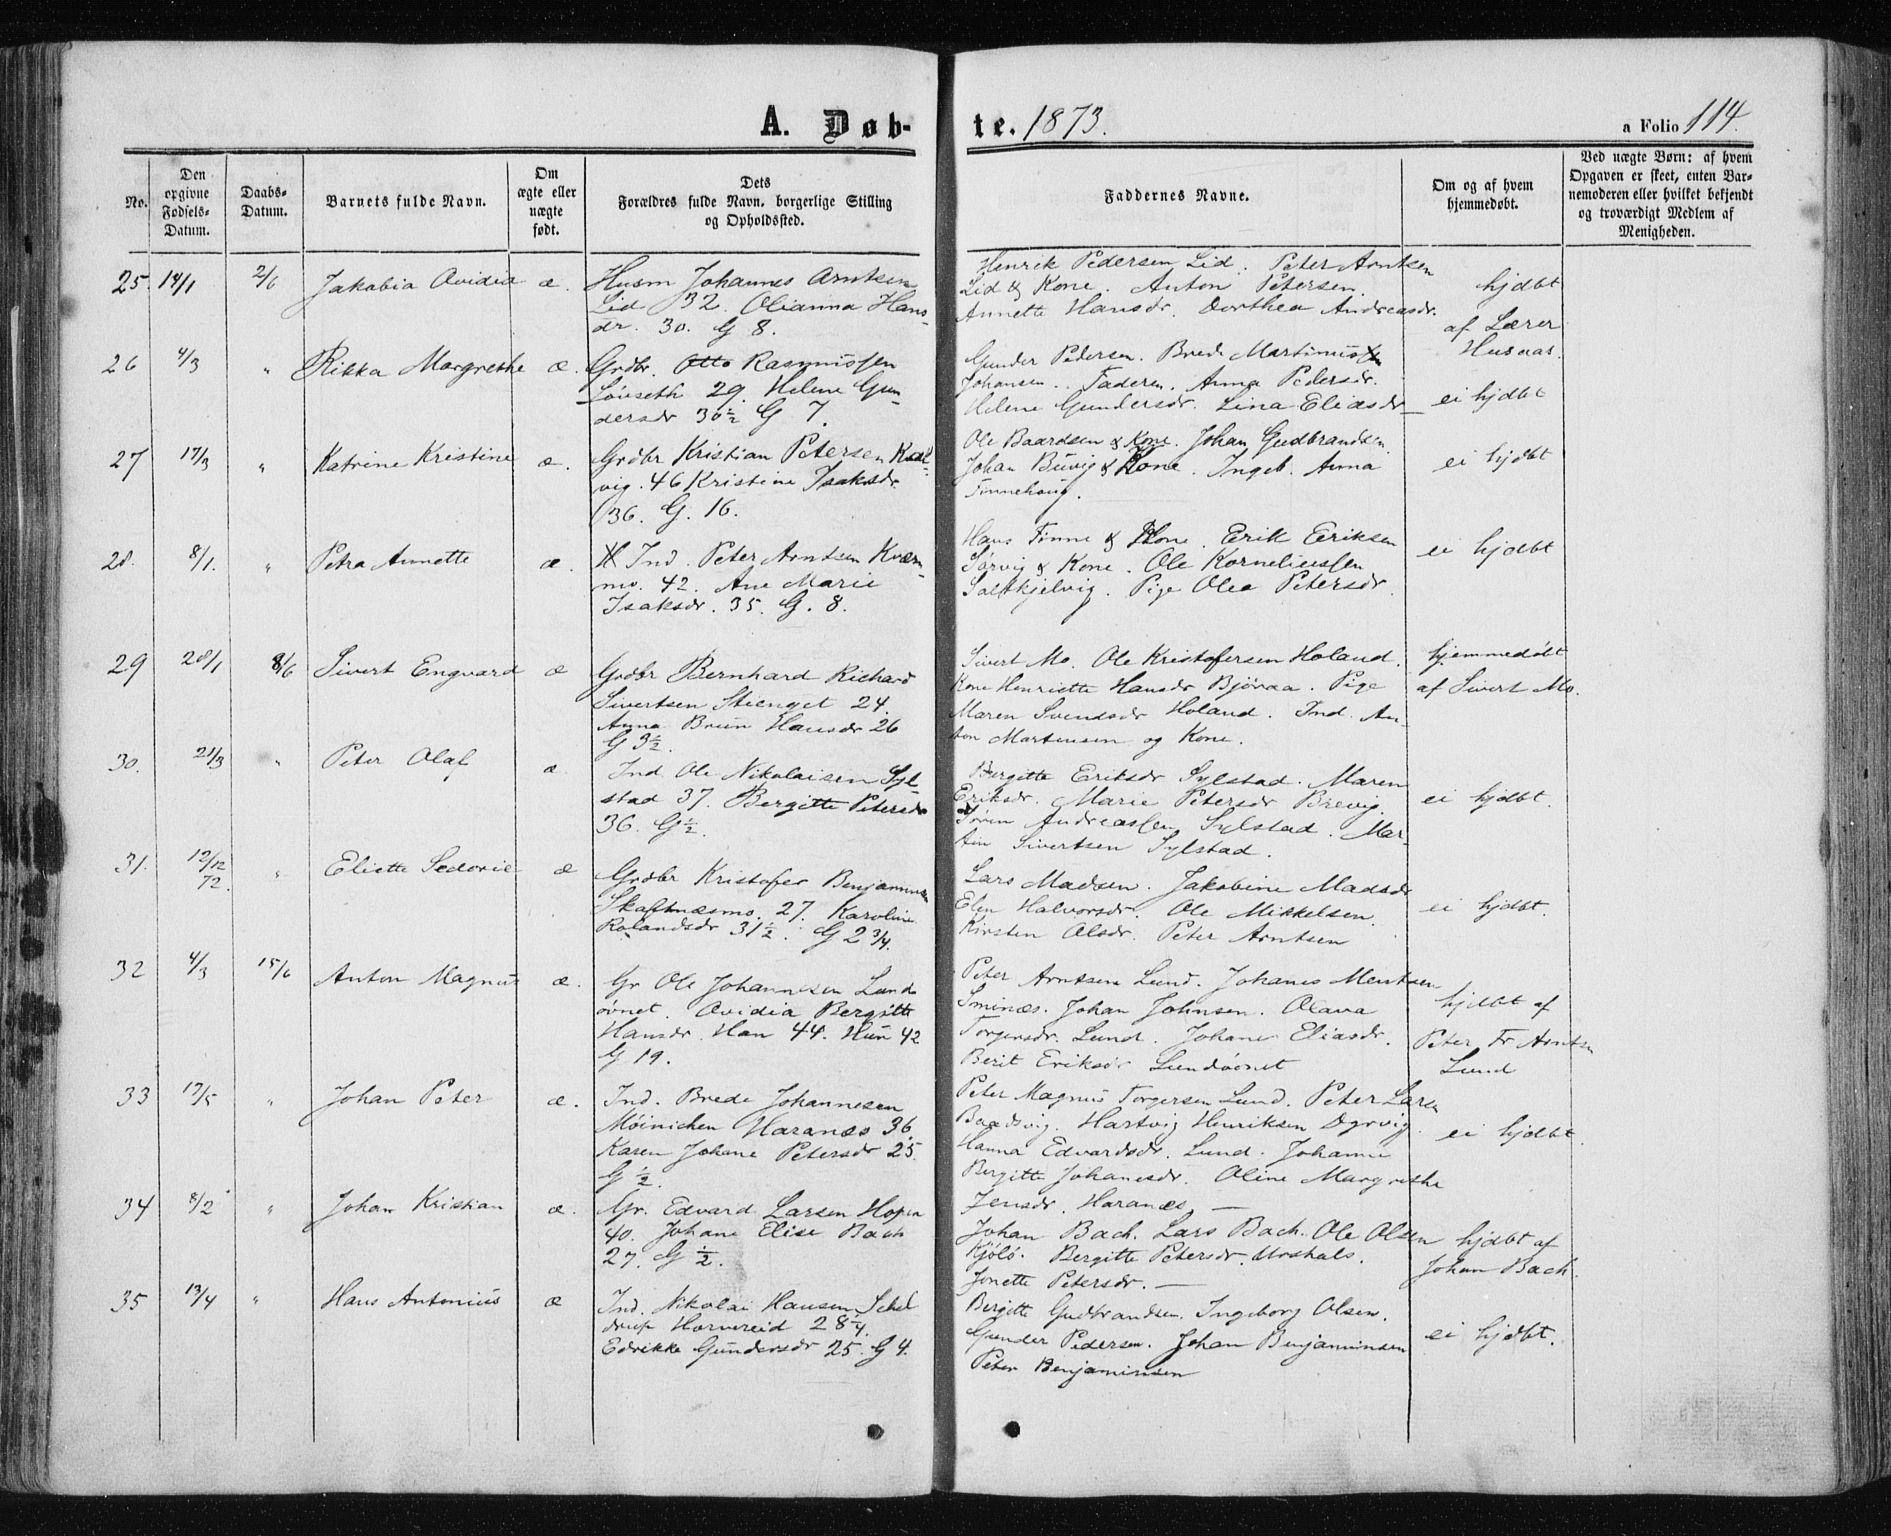 A. Døb-
te. 1873.
a Folio 114.
No.
Den opgivne Fødsels-Datum.
Daabs-Datum.
Barnets fulde Navn.
Om ægte eller uægte født.
Dets Forældres fulde Navn, borgerlige Stilling og Opholdssted.
Faddernes Navne.
Om og af hvem hjemmedøbt.
Ved uægte Børn: af hvem Opgaven er skeet, enten Barnemoderen eller hvilket bekjendt og troværdigt Medlem af Menigheden.
25. 14/1 2/6 Jakobia Ovidia æ.
Husm Johannes Arntsen
Lid 32. Olianna Hans-
dr. 30. G 8.
Henrik Pedersen Lid. Peter Arntsen
Lid & Kone. Anton Petersen.
Annette Hansdr. Dorthea Andreasdr.
hjdbt
af Lærer
Husvas.
26 4/3 " Rikka Margrethe æ.
Grdbr. Otto Rasmussen
Løvseth 29. Helene Gun-
dersdr 30½ G 7.
Gunder Pedersen. Brede Martinussen
Johansen. Faderen. Anna Pedersdr.
Helene Gundersdr. Lina Eliasdr
ei hjdbt
27 17/3 " Katrine Kristine æ.
Grdbr Kristian Petersen Kval-
vig. 46 Kristine Isaksdr
36. G. 16.
Ole Baardsen & Kone. Johan Gudbrandsen.
Johan Buvig & Kone. Ingeb. Anna
Finnehaug.
ei hjdbt
28. 8/1. " Petra Annette æ.
Ind. Peter Arntsen Kværn-
mo. 42. Ane Marie
Isaksdr. 35. G. 8.
Hans Finne & Kone. Erik Eriksen
Sørvig & Kone. Ole Korneliussen
Saltkjelvig. Pige Olea Petersdr.
ei hjdbt
29 28/1 8/6 Sivert Engvard æ
Grdbr Bernhard Richard
Sivertsen Stienget 24.
Anna Brun Hansdr 26
G 3½.
Sivert Mo. Ole Kristofersen Holand.
Kone Henriette Hansdr Bjøraa. Pige
Maren Svendsdr Holand. Ind. An-
ton Martensen og Kone.
hjemmedøbt
af Sivert Mo.
30. 21/3 " Peter Olaf æ
Ind. Ole Nikolaisen Syl-
stad 37. Bergitte Petersdr
36. G ½.
Bergitte Eriksdr Sylstad. Maren
Eriksdr. Marie Petersdr Brevig.
Søren Andreassen Sylstad. Mar-
tin Sivertsen Sylstad.
ei hjdbt.
31. 12/12 72. " Eliette Sedorie æ
Grdbr Kristofer Benjaminsen
Skaftnæsmo. 27. Karoline
Rolandsdr 31½. G 2¾.
Lars Madsen. Jakobine Madsdr
Elen Halvorsdr. Ole Mikkelsen.
Kirsten Olsdr. Peter Arntsen
ei hjdbt.
32 4/3 15/6 Anton Magnus æ.
Gr Ole Johannesen Lund
øvnet. Ovidia Bergitte
Hansdr. Han 44. Hun 42
G 19.
Peter Arntsen Lund. Johanes Mentsen
Sminæs. Johan Johnsen. Olava
Torgersdr. Lund. Johane Eliasdr.
Berit Eriksdr Lundøvnet
hjdbt af
Peter Fr Arntsen
Lund
33 17/5 " Johan Peter æ.
Ind. Brede Johannesen
Møinichen Haranæs 36.
Karen Johane Petersdr 25.
G ½.
Peter Magnus Torgersen Lund. Peter Larsen
Baadsvig. Hartvig Henriksen Dyrvig.
Hanna Edvardsdr. Lund. Johanne
Bergitte Johanesdr. Oline Margrethe
Jensdr. Haranæs. —
ei hjdbt.
34 8/2 " Johan Kristian æ.
Gr. Edvard Larsen Hopen
40. Johane Elise Bach
27. G ½.
Johan Bach. Lars Bach. Ole Olsen
Kjølø. Bergitte Petersdr. Mrshals.
Jonette Petersdr. —
hjdbt af
Johan Bach.
35 13/4 " Hans Antonius æ
Ind. Nikolai Hansen Schel
drup Hornereid 28¼.
Edrikke Gundersdr 25. G 4.
Bergitte Gudbrandsen. Ingeborg Olsen.
Gunder Pedersen. Johan Benjaminsen
Peter Benjaminsen
ei hjdbt.